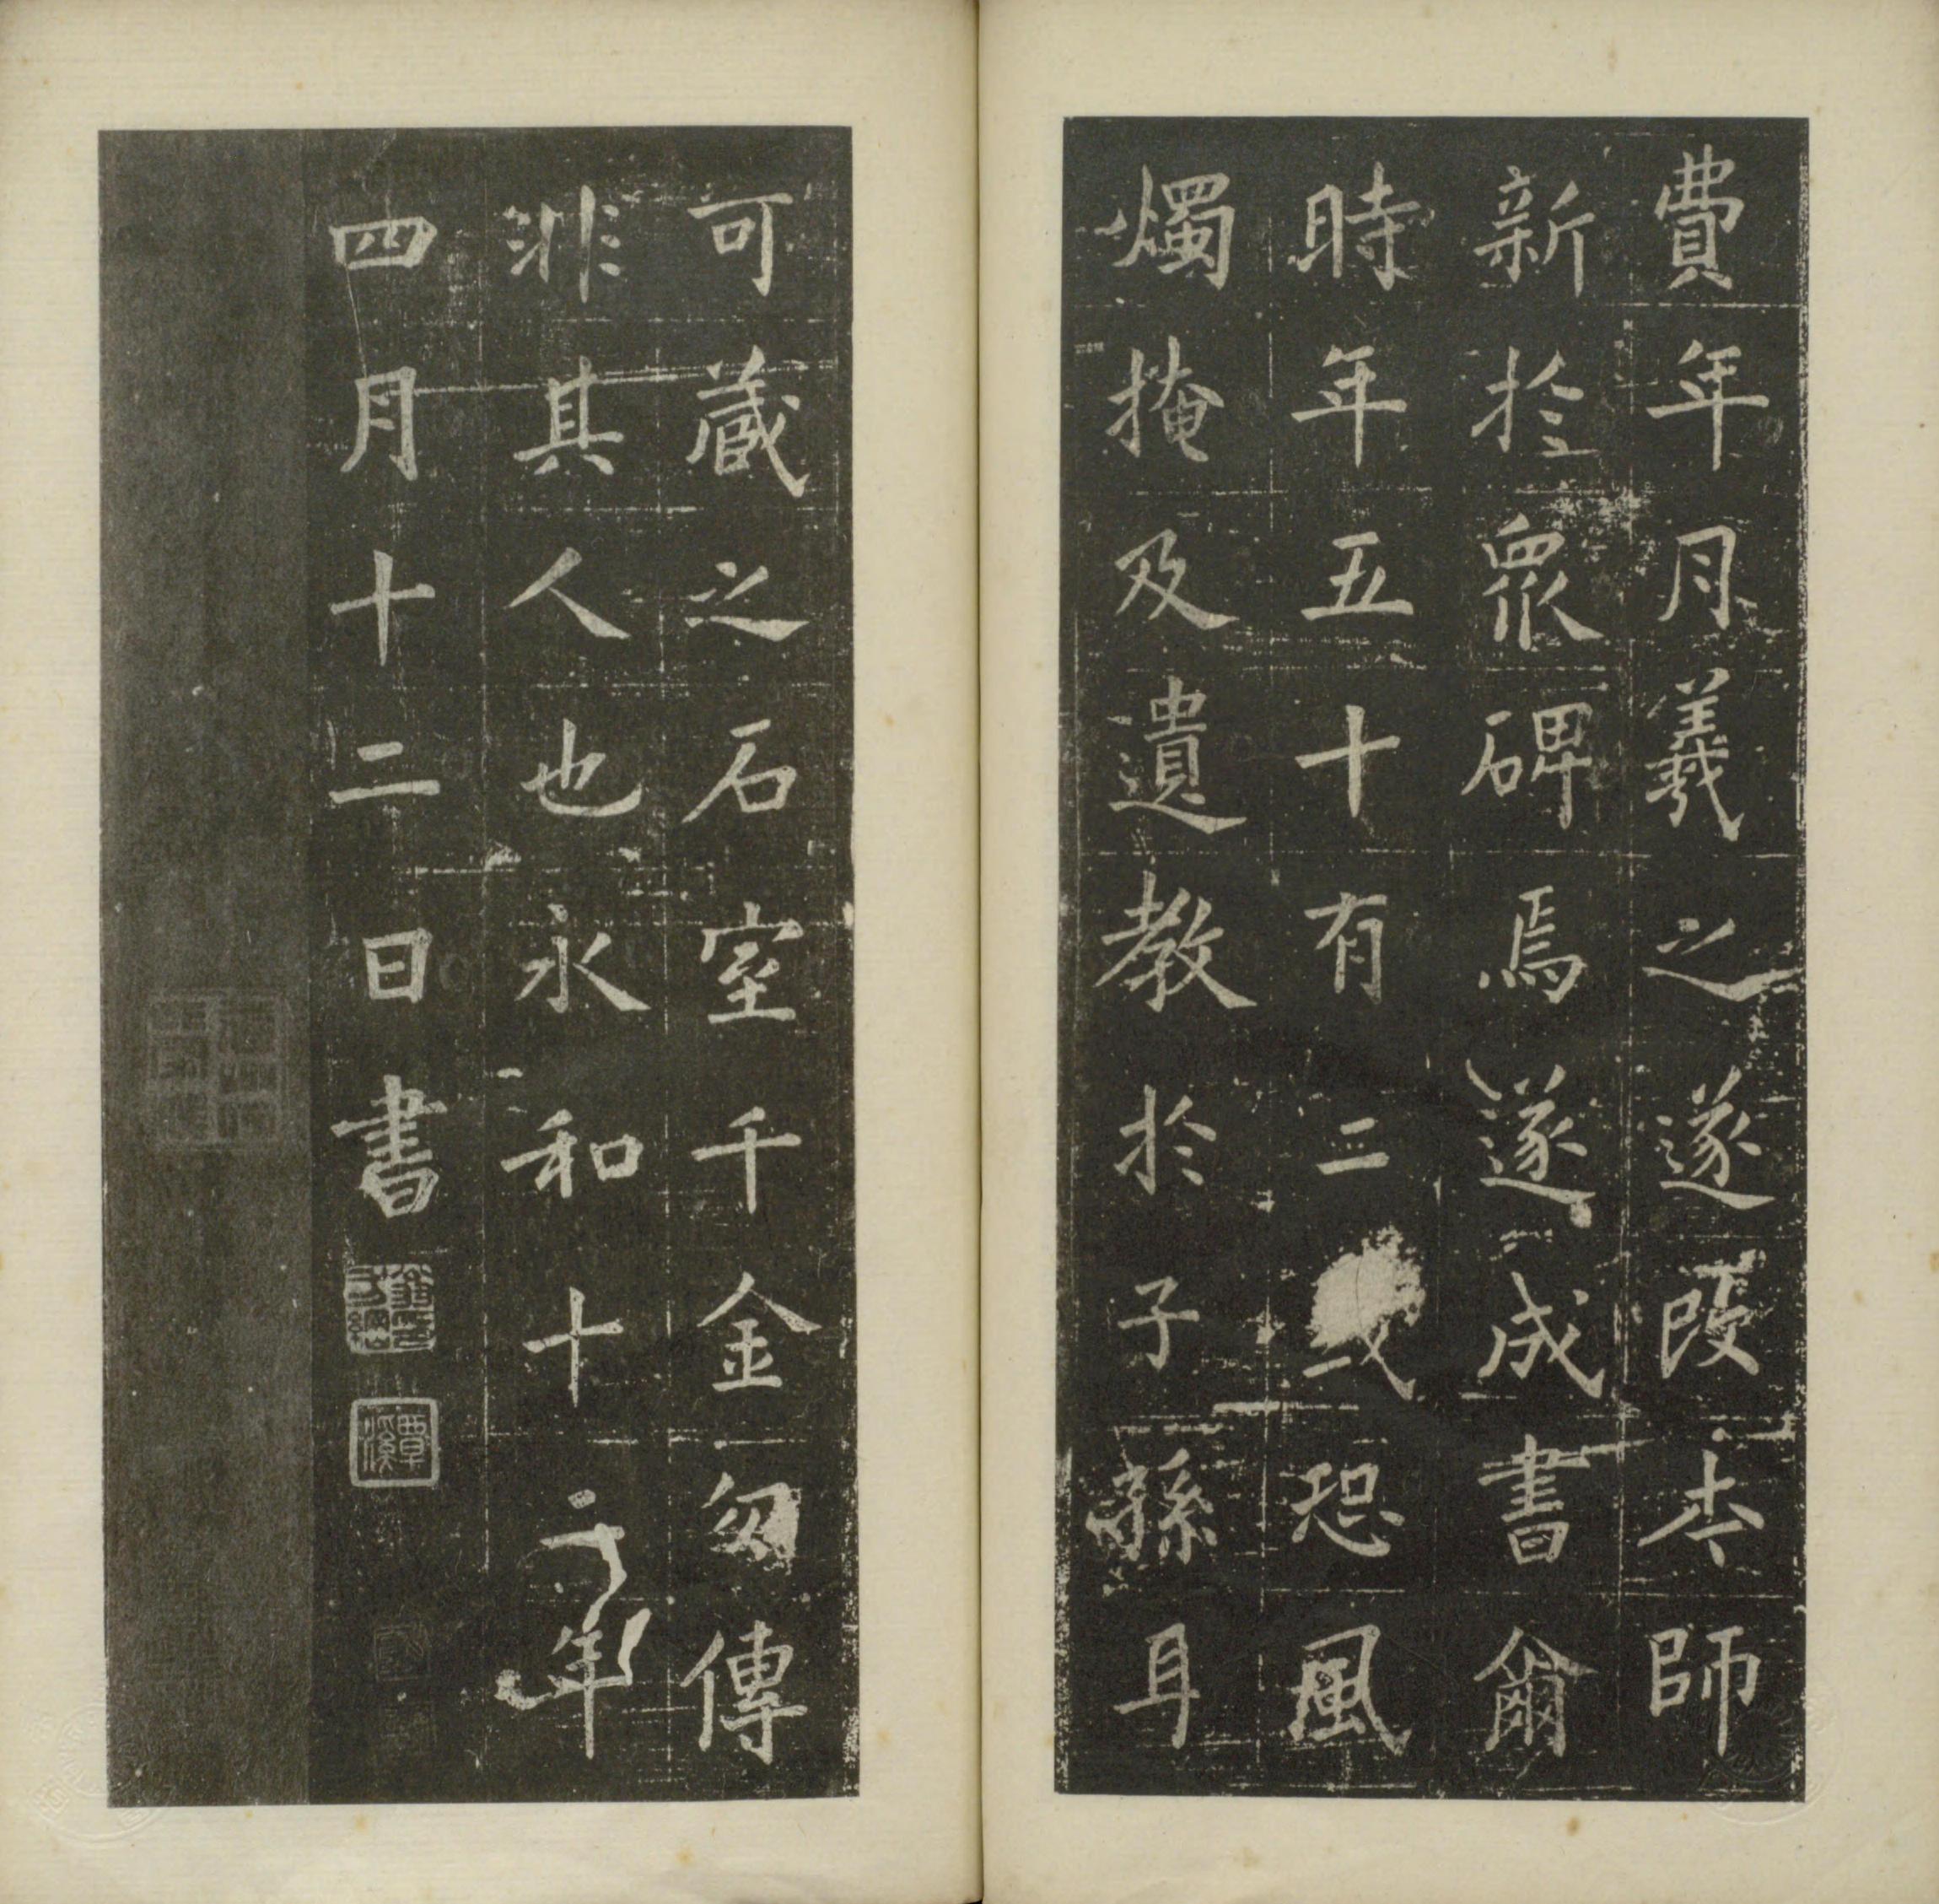 費年月羲之遂改本師
新於衆碑焉遂成書爾
時年五十有二或恐風
燭掩及遺教於子孫耳
可蔵之石室千金勿傳
非其人也永和十二年
四月十二日書
覃溪